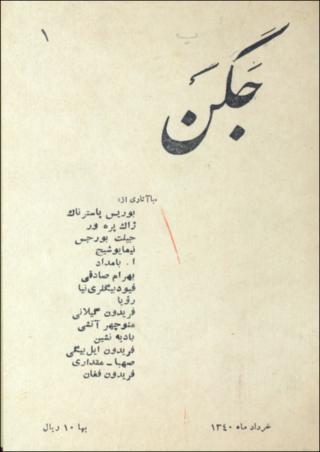 ۱
جگن
با آثاری از:
بوریس پاسترناك
ژاك پره ور
جیلت بورجس
نیمایوشیج
ا . بامداد
بهرام صادقی
فیودبیگلری‌نیا
رؤیا
فریدون گیلانی
منوچهر آتشی
بادیه نشین
فریدون ایل‌بیگی
صهبا ـ مقداری
فریدون فغان
خرداد ماه ۱۳۴۰
بها ۱۰ ریال